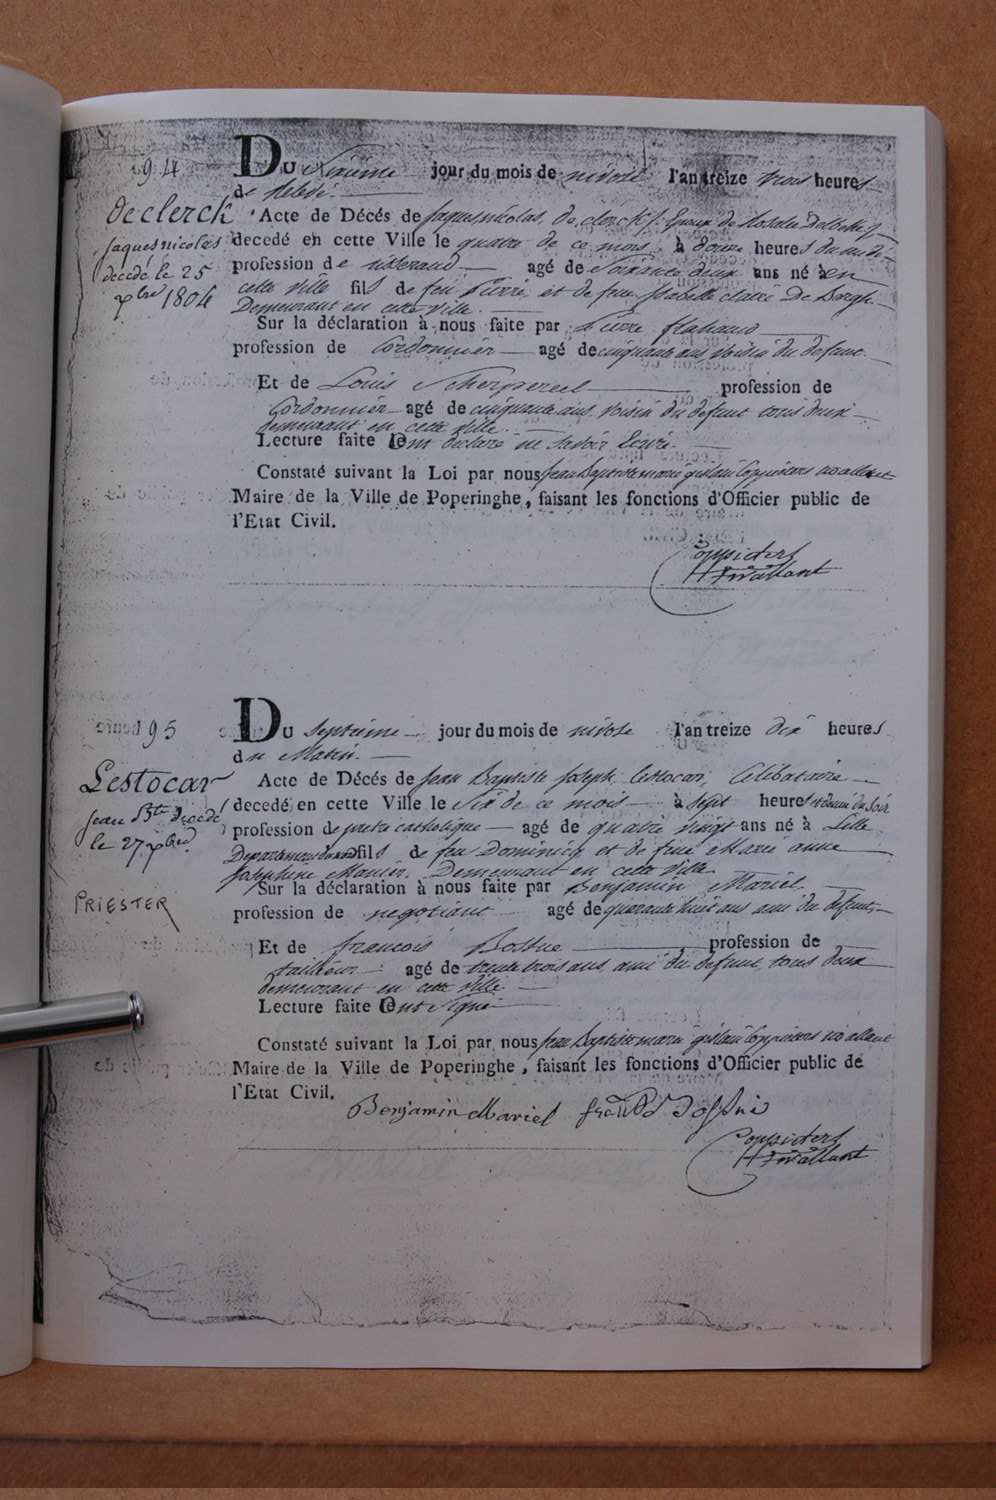 94
Du Sixieme jour du mois de nivose l'an treize trois heures
de Relevé.
declerck
Jaques nicolas
decedé le 25
xbre 1804
Acte de Décés de Jaques nicolas de clerck Epoux de Rosalie
decedé en cette Ville le quatre de ce mois à douze heures du midi
profession de agé de Soixante deux ans né à en
cette ville fils de feu Pierre, et de feue Isabelle claire De Bergh
Demeurant en cette ville.
Sur la déclaration à nous faite par Pierre flahauw
profession de Cordonnier agé de cinquante ans voisin du defunt
Et de Louis Scherpereel profession de
Cordonnier agé de cinquante ans, voisin du defunt tous deux
demeurant en cette ville.
Lecture faite ont declaré ne savoir Ecrire.
Constaté suivant la Loi par nous Jean Baptiste marie gislain Coppieters wallant
Maire de la Ville de Poperinghe, faisant les fonctions d'Officier public de
l'Etat Civil.
Coppieters
Wallant
95
Du Septieme jour du mois de nivose l'an treize dix heures
du Matin.
Lestocar
Jean Bte Decedé
le 27 xbre
PRIESTER
Acte de Décés de Jean Baptiste Joseph Lestocar, Celibataire
decedé en cette Ville le Six de ce mois à Sept heures du Soir
profession de pretre catholique agé de quatre vingt ans né à Lille
Departement du nord fils de feu Dominicq et de feue Marie anne
Josephine Demeurant en cette Ville.
Sur la déclaration à nous faite par Benjamin Mariel
profession de negotiant agé de quarante huit ans ami du defunt
Et de francois Bossue profession de
tailleur agé de trente trois ans, ami du defunt, tous deux
demeurant en cette ville
Lecture faite ont Signé
Constaté suivant la Loi par nous Jean Baptiste marie gislain Coppieters wallant
Maire de la Ville de Poperinghe, faisant les fonctions d'Officier public de
l'Etat Civil.
Benjamin Mariel
Coppieters
Wallant